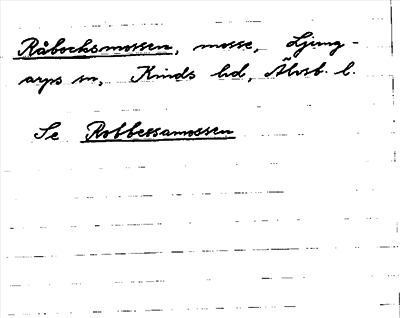 Råbocksmossen, mosse, Ljung-
arps sn, Kinds hd, Älvsb. l.
Se Robbessamossen